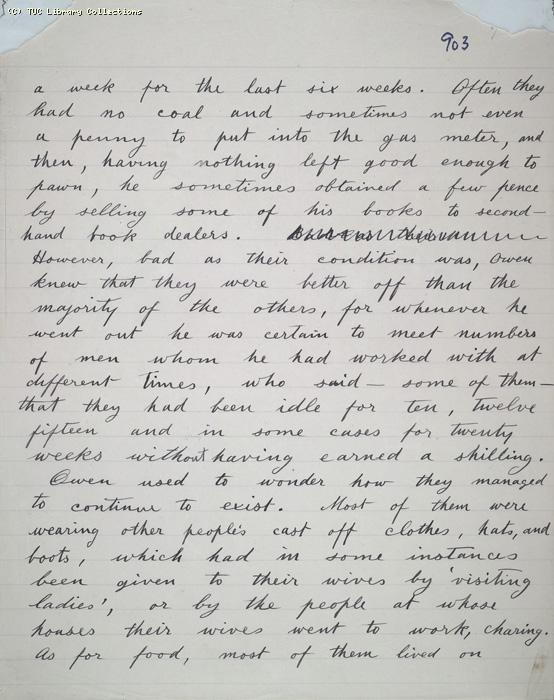 (C) TUC Library Collections
903
a week for the last six weeks. Often they
had no coal and sometimes not even
a penny to put into the gas meter, and
then, having nothing left good enough to
pawn, he sometimes obtained a few pence
by selling some of his books to second-
hand book dealers.
However, bad as their condition was, Owen
knew that they were better off than the
majority of the others, for whenever he
went out he was certain to meet numbers
of men whom he had worked with at
different times, who said — some of them —
that they had been idle for ten, twelve
fifteen and in some cases for twenty
weeks without having earned a shilling.
Owen used to wonder how they managed
to continue to exist. Most of them were
wearing other people's cast off clothes, hats, and
boots, which had in some instances
been given to their wives by 'visiting
ladies', or by the people at whose
houses their wives went to work, charing.
As for food, most of them lived on